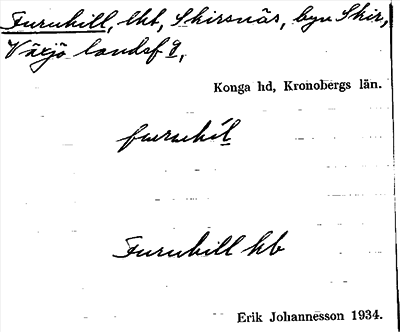 Furuhill, lht, Skirsnäs, byn Skir,
Växjö landsf g,
Konga hd, Kronobergs län.
furuhil
Furuhill hb
Erik Johannesson 1934.